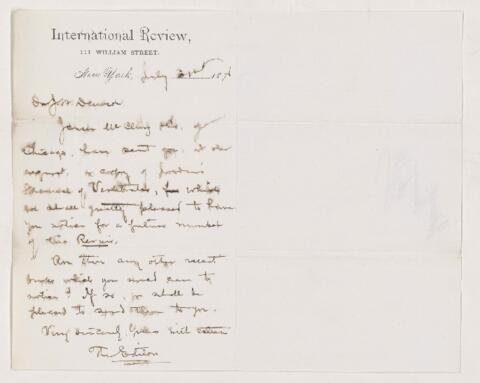 International Review,
111 WILLIAM STREET.
New York, July 21st 187
Dr J. W. Dawson
Jansen McClurg &Co. of
Chicago, have sent you, at our
request, a copy of Jordan's
Manual of Vertebrates, for which
we shall be greatly pleased to have
you notice for a future number
of the Review.
Are there any other recent
books which you would care to
notice? If so, we shall be
pleased to send them to you.
Very sincerely Yours
The Editors